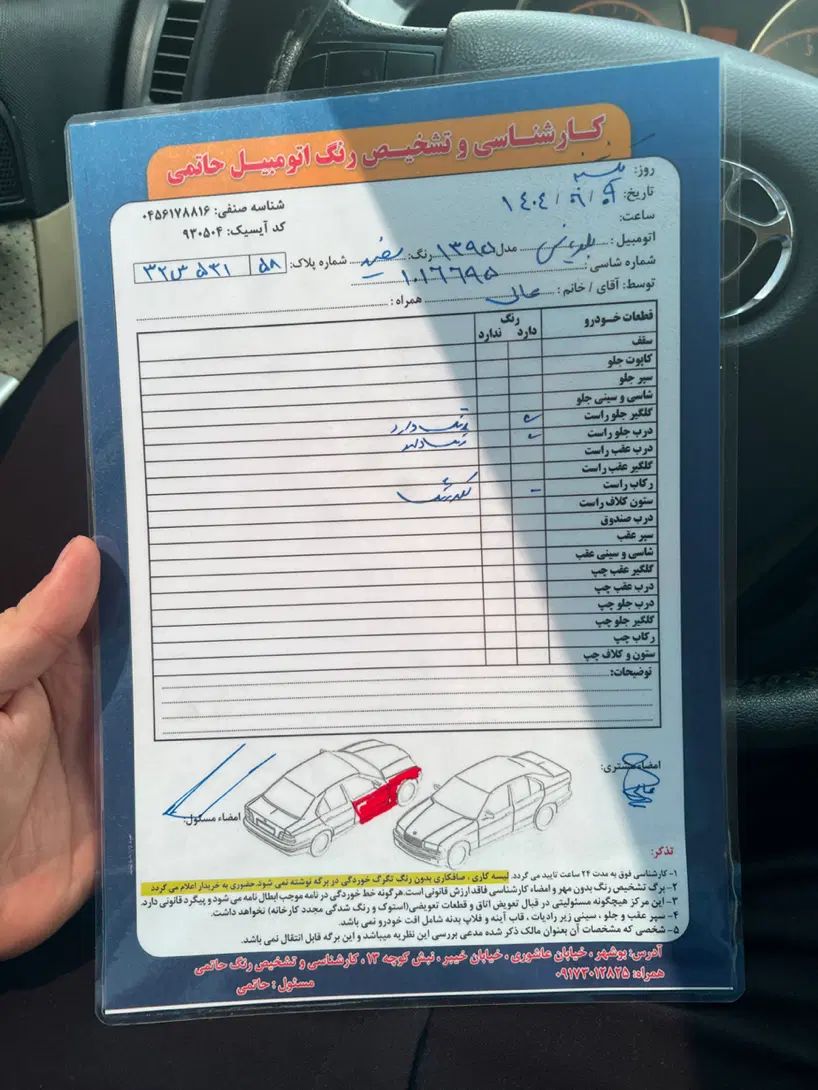 کارشناسی و تشخیص رنگ اتومبیل حاتمی
روز:
تاریخ: ۱۴۰۴/
ساعت:
شناسه صنفی: ۰۴۵۶۱۷۸۸۱۶
کد آیسیک: ۹۳۰۵۰۴
اتومبیل: مدل ۱۳۹۵ رنگ: سفید شماره پلاک: ۵۸ ۵۳۱س۳۲
شماره شاسی: ۱۰۱۶۶۹۵
توسط: آقای / خانم: همراه:
قطعات خودرو رنگ
دارد ندارد
سقف
کاپوت جلو
سپر جلو
شاسی و سینی جلو
گلگیر جلو راست رنگ دارد
درب جلو راست رنگ دارد
درب عقب راست
گلگیر عقب راست
رکاب راست
ستون کلاف راست
درب صندوق
سپر عقب
شاسی و سینی عقب
گلگیر عقب چپ
درب عقب چپ
درب جلو چپ
گلگیر جلو چپ
رکاب چپ
ستون و کلاف چپ
توضیحات:
امضاء مشتری:
امضاء مسئول:
تذکر:
۱- کارشناسی فوق به مدت ۲۴ ساعت تایید می گردد. لیسه کاری ، صافکاری بدون رنگ تگرگ خوردگی در برگه نوشته نمی شود. حضوری به خریدار اعلام می گردد
۲- برگ تشخیص رنگ بدون مهر و امضاء کارشناسی فاقد ارزش قانونی است. هرگونه خط خوردگی در نامه موجب ابطال نامه می شود و پیگرد قانونی دارد.
۳- این مرکز هیچگونه مسئولیتی در قبال تعویض اتاق و قطعات تعویضی (استوک و رنگ شدگی مجدد کارخانه) نخواهد داشت.
۴- سپر عقب و جلو ، سینی زیر رادیات ، قاب آینه و فلاپ بدنه شامل افت خودرو نمی باشد.
۵- شخصی که مشخصات آن بعنوان مالک ذکر شده مدعی بررسی این نظریه میباشد و این برگه قابل انتقال نمی باشد.
آدرس: بوشهر ، خیابان عاشوری ، خیابان خیبر ، نبش کوچه ۱۳ ، کارشناسی و تشخیص رنگ حاتمی
همراه: ۰۹۱۷۳۰۱۲۸۲۵ مسئول : حاتمی